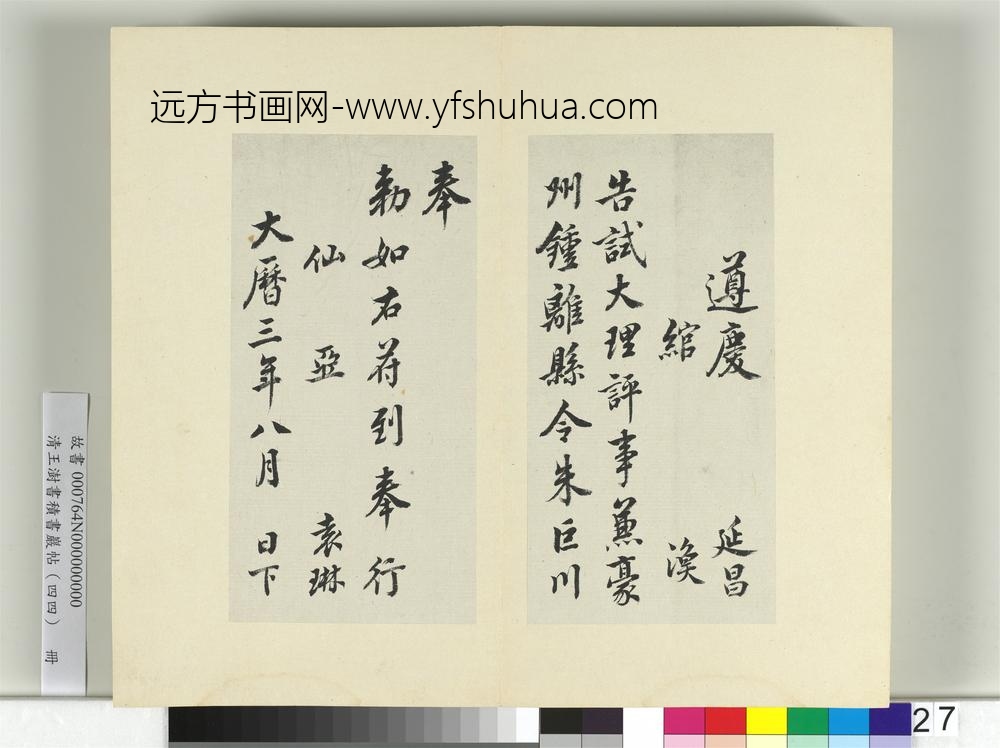 远方书画网-www.yfshuhua.com
遵慶 延昌
綰 渙
告試大理評事兼豪
州鍾離縣令朱巨川
奉
勑如右苻到奉行
仙 亞 袁琳
大曆三年八月 日下
故書 000764N000000000
清王澍書積書巖帖（四四） 冊
27